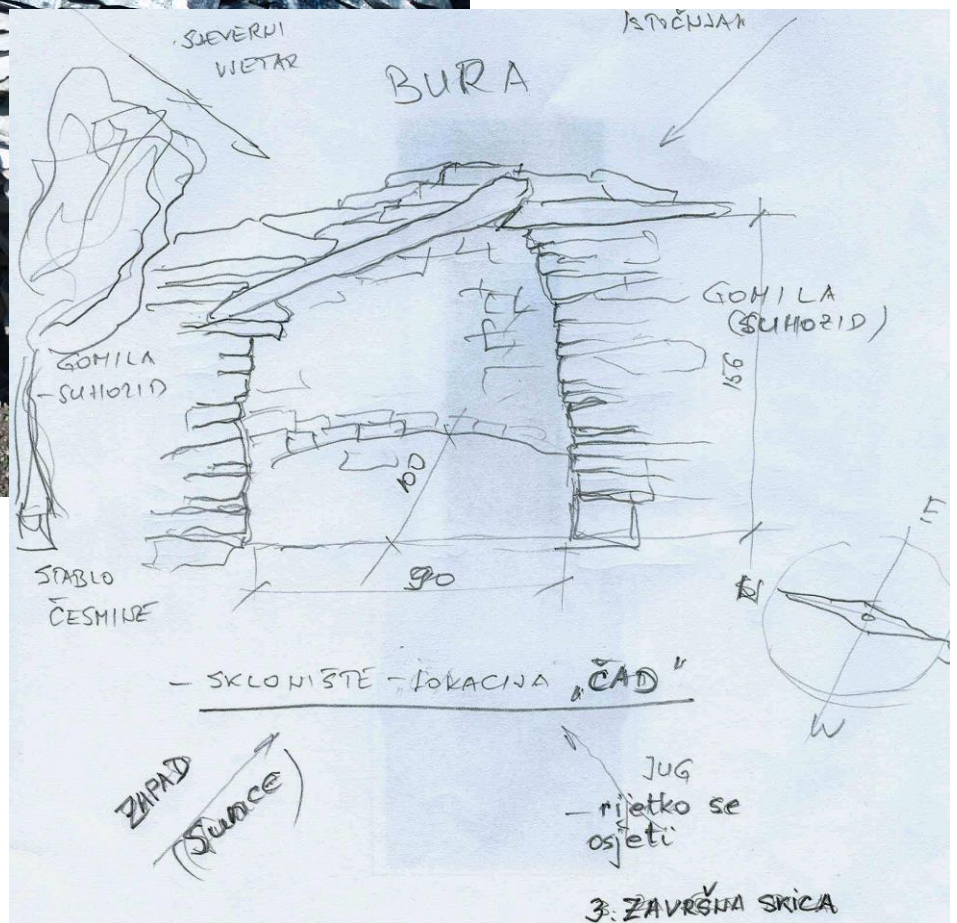 SJEVERNI
VJETAR
BURA
ISTOČNJAK
GOMILA
(SUHOZID)
156
GOMILA
- SUHOZID
100
90
STABLO
ČESMINE
E
N
W
- SKLONIŠTE - LOKACIJA „ČAD"
ZAPAD
(SUNCE)
JUG
- rijetko se
osjeti
3. ZAVRŠNA SKICA